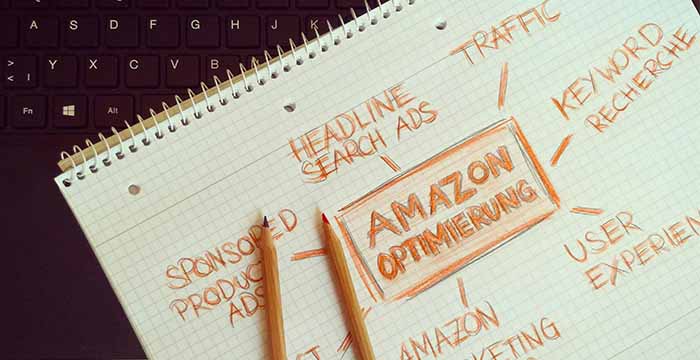 A S D F G H J K L
> < | Y X C V B
Fn Alt
TRAFFIC
HEADLINE
SEARCH ADS
KEYWORD
RECHERCHE
AMAZON
OPTIMIERUNG
SPONSORED
PRODUCT
ADS
USER
EXPERIEN
AMAZON
KETING